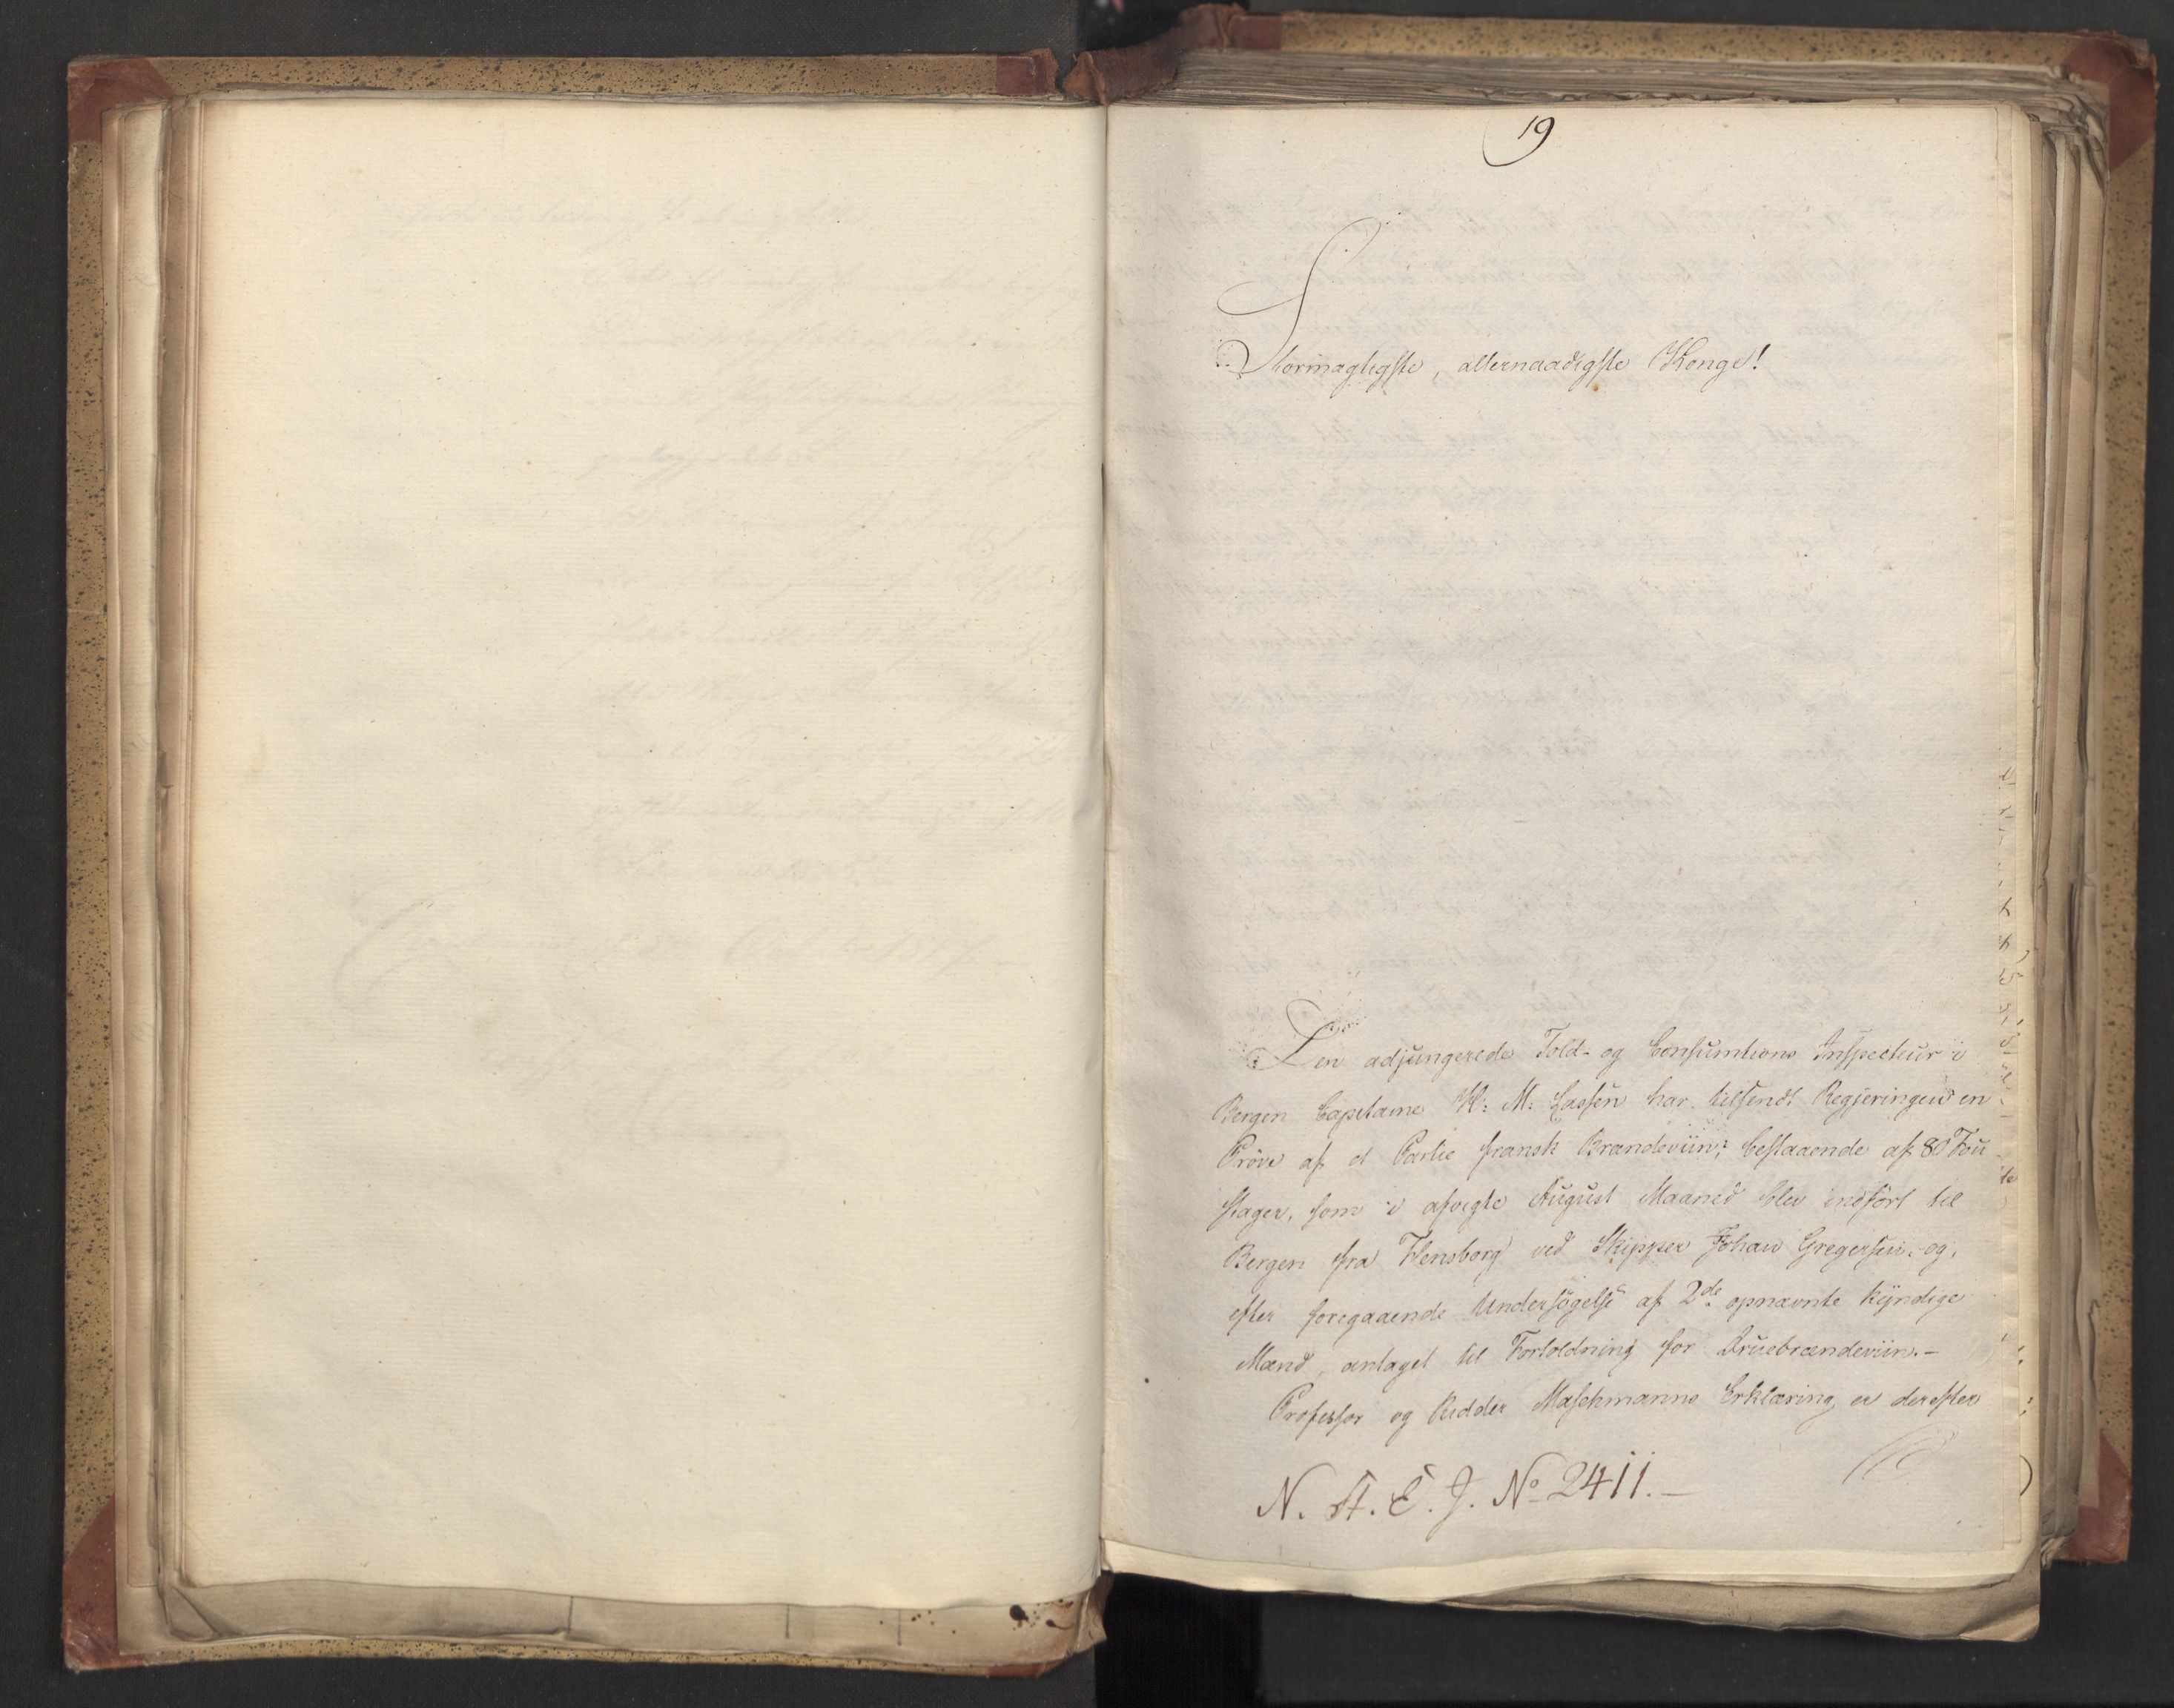 19
Stormægtigste, allernaadigste Konge!
Den adjungerede Told- og Consumtions Inspecteur i
Bergen Capitaine H: M: Lassen har tilsendt Regjeringen en
Pröve af et Partie fransk Brændeviin, bestaaende af 80 Fou
stager, som i afvigte August Maaned blev indfört til
Bergen fra Flensborg ved Skipper Johan Gregersen og,
efter foregaaende Undersögelse af 2de opnævnte kÿndige
Mænd, antaget til Fortoldning for Druebrændeviin.-
Professor og Ridder Maschmanns Erklæring er derefter
N. A. E. J. No 2411.-